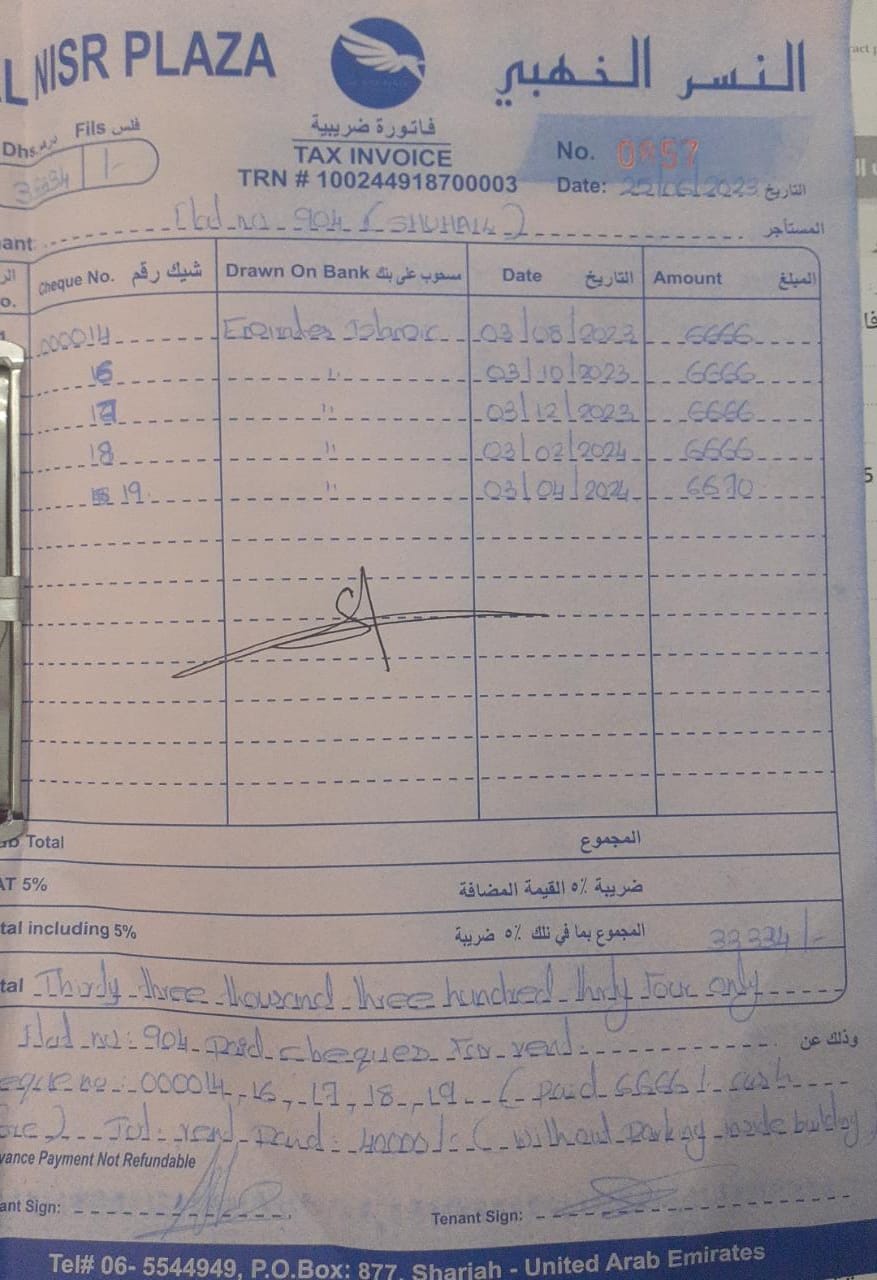 L NISR PLAZA
النسر الذهبي
فاتورة ضريبية
TAX INVOICE
TRN # 100244918700003
Dhs. درهم Fils فلس
33334 /-
No. 0857
Date: 25/06/2023 التاريخ
ant: Flat no 904 (SUHAIL) المستأجر
Cheque No. شيك رقم Drawn On Bank مسحوب على بنك Date التاريخ Amount المبلغ
o.
000014 Emirates Islamic 03/08/2023 6666
16 " 03/10/2023 6666
17 " 03/12/2023 6666
18 " 03/02/2024 6666
19 " 03/04/2024 6670
Total المجموع
AT 5% ضريبة ٥٪ القيمة المضافة
tal including 5% المجموع بما في ذلك ٥٪ ضريبة 33334/-
tal Thirty three thousand three hundred thirty four only
Flat no: 904 paid cheques for rent. وذلك عن
eque no: 000014, 16, 17, 18, 19 (paid 6666/ cash
Tot: rent paid: 40000/- (without parking inside building
vance Payment Not Refundable
ant Sign: Tenant Sign:
Tel# 06- 5544949, P.O.Box: 877, Sharjah - United Arab Emirates